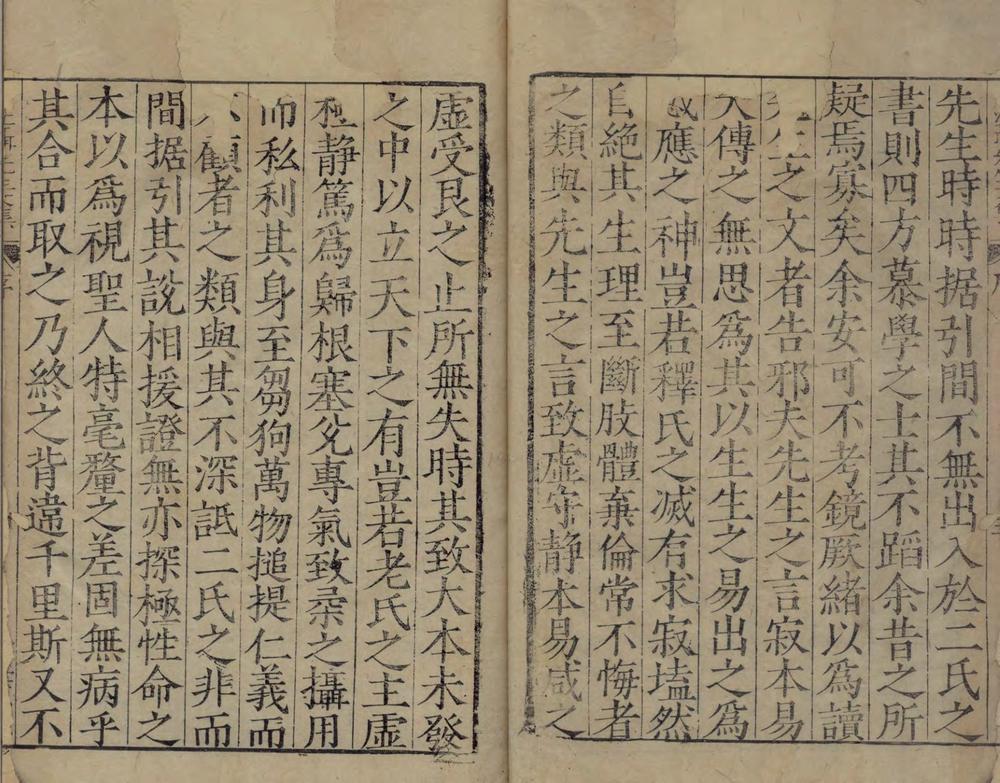 先生時時据引間不無出入於二氏之
書則四方慕學之士其不蹈余昔之所
疑焉寡矣余安可不考鏡厥緒以爲讀
先生之文者告邪夫先生之言寂本易
大傳之無思爲其以生生之易出之爲
感應之神豈若釋氏之滅有求寂塊然
自絶其生理至斷肢體棄倫常不悔者
之類與先生之言致虛守静本易咸之
虛受艮之止所無失時其致大本未發
之中以立天下之有豈若老氏之主虛
極静篤爲歸根塞兊專氣致柔之攝用
而私利其身至芻狗萬物搥提仁義而
不顧者之類與其不深詆二氏之非而
間据引其說相援證無亦探極性命之
本以爲視聖人特毫釐之差固無病乎
其合而取之乃終之背違千里斯又不